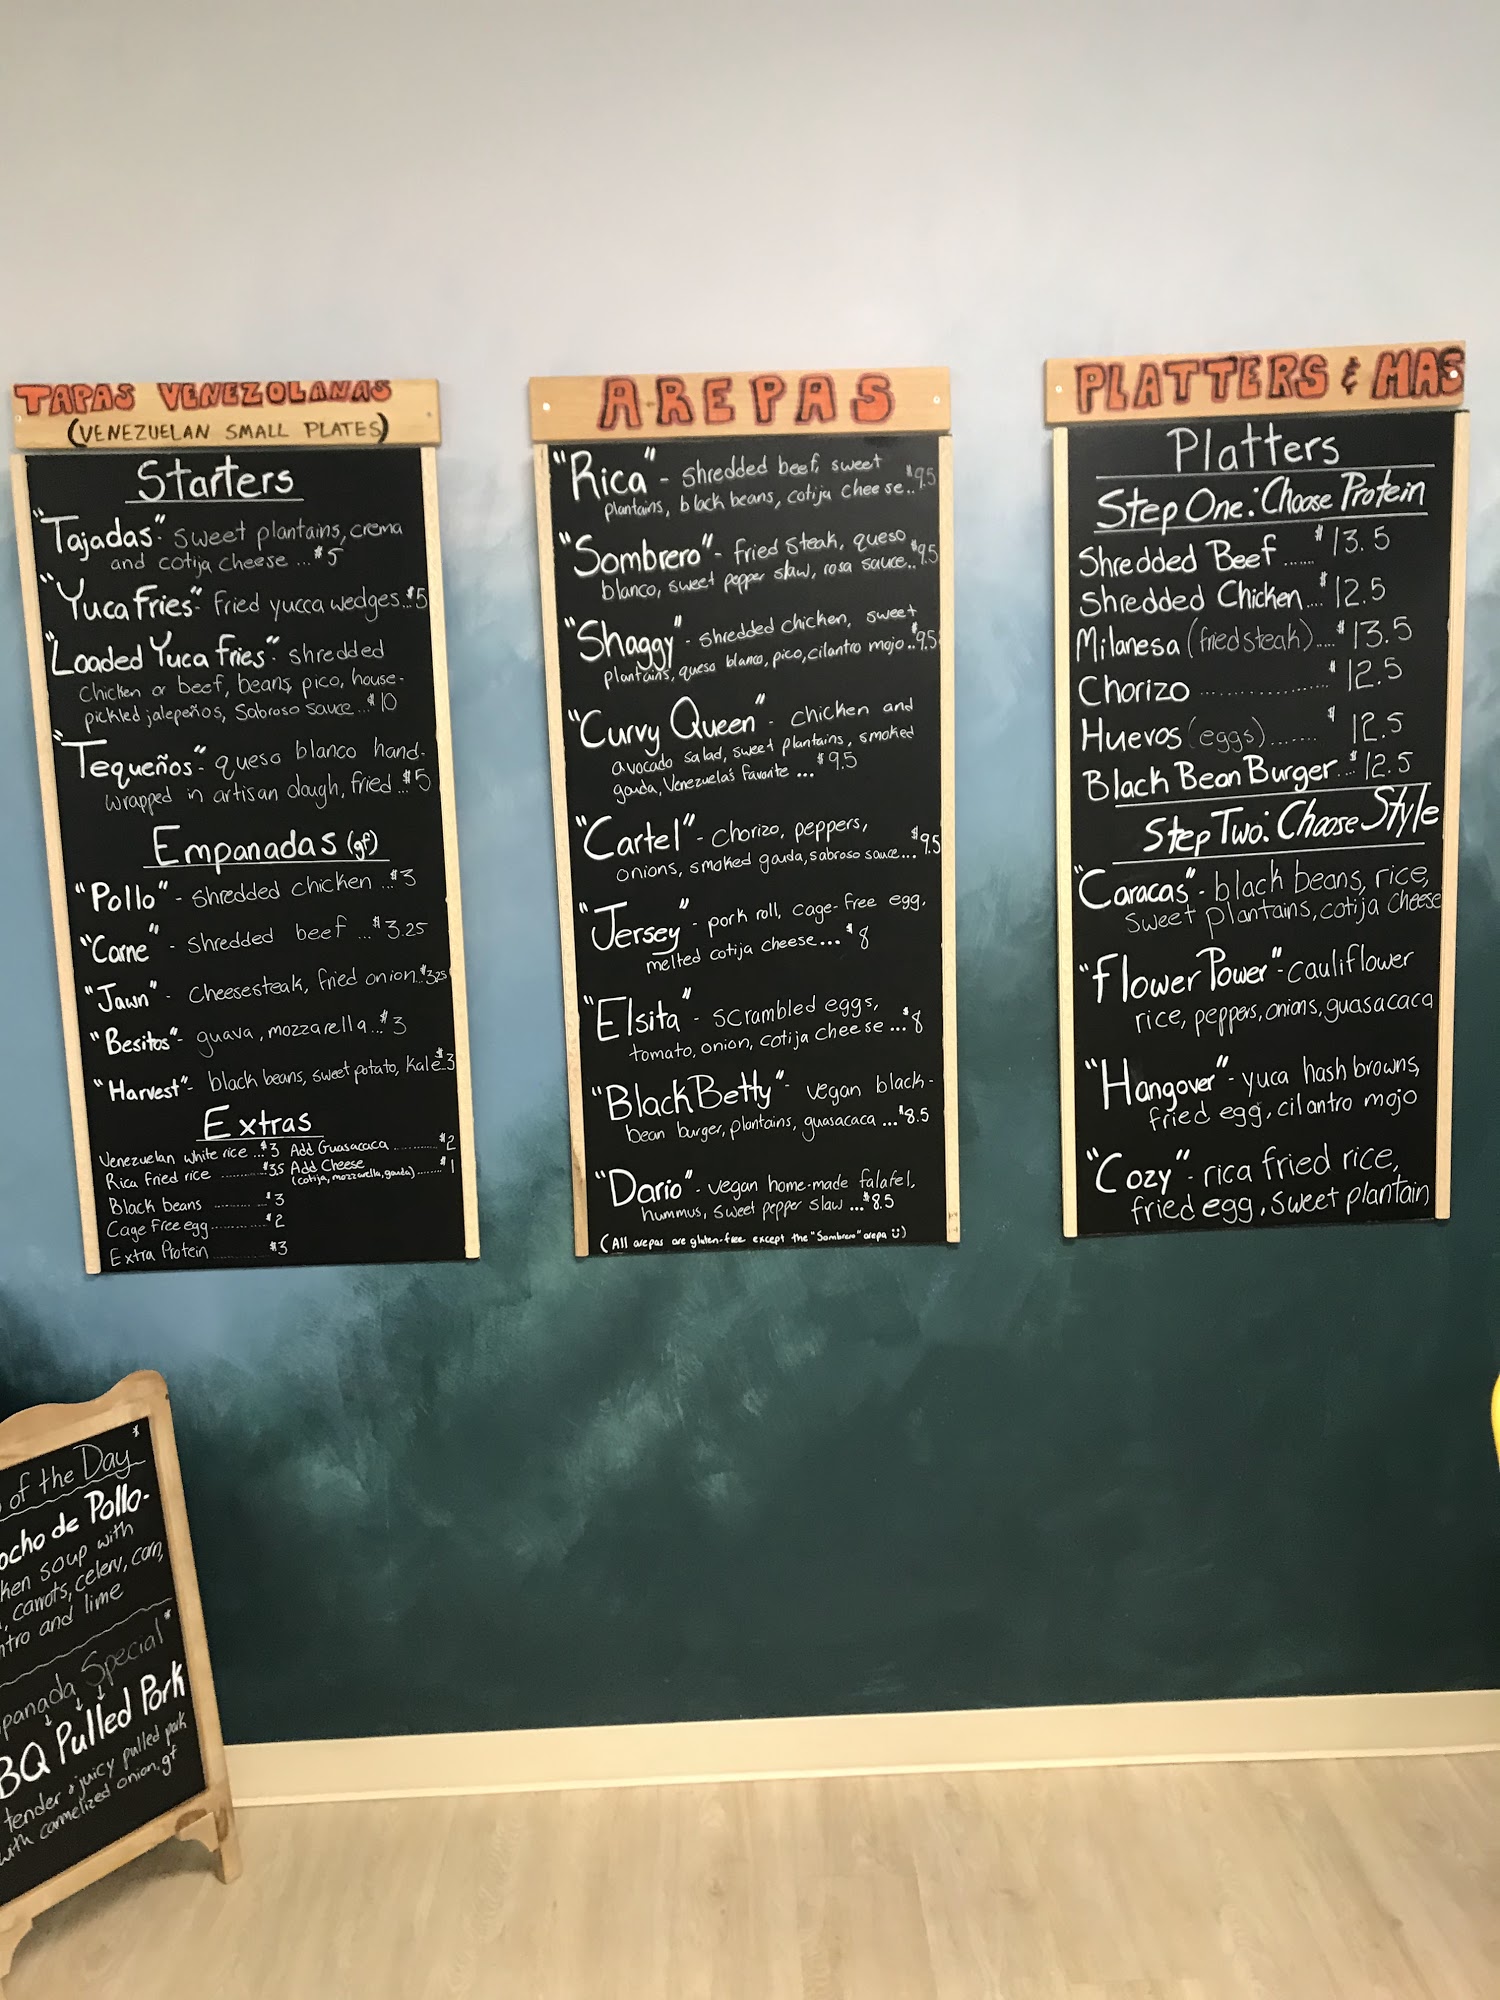 TAPAS VENEZOLANAS
(VENEZUELAN SMALL PLATES)
Starters
"Tajadas" sweet plantains, crema
and cotija cheese ... $5
"Yuca Fries" - Fried yucca wedges..$5
"Loaded Yuca Fries" - shredded
chicken or beef, beans, pico, house-
pickled jalepeños, Sabroso sauce ...$10
"Tequeños" - queso blanco hand-
wrapped in artisan dough, fried ..$5
Empanadas (gf)
"Pollo" - shredded chicken ...$3
"Carne" - shredded beef ...$3.25
"Jawn" - cheesesteak, fried onion..$3.25
"Besitos" - guava, mozzarella...$3
"Harvest" - black beans, sweet potato, kale..$3
Extras
Venezuelan white rice ...$3 Add Guasacaca ............$2
Rica fried rice ............$3.5 Add Cheese
(cotija, mozzarella, gouda) .......$1
Black beans ............$3
Cage Free egg............$2
Extra Protein ............$3
AREPAS
"Rica" - shredded beef, sweet
plantains, black beans, cotija cheese..$9.5
"Sombrero" - fried steak, queso
blanco, sweet pepper slaw, rosa sauce..$9.5
"Shaggy" - shredded chicken, sweet
plantains, queso blanco, pico, cilantro mojo..$9.5
"Curvy Queen" - chicken and
avocado salad, sweet plantains, smoked
gouda, Venezuela's favorite ... $9.5
"Cartel" - chorizo, peppers,
onions, smoked gouda, sabroso sauce...$9.5
"Jersey" - pork roll, cage-free egg,
melted cotija cheese... $8
"Elsita" - scrambled eggs,
tomato, onion, cotija cheese ...$8
"Black Betty" - vegan black-
bean burger, plantains, guasacaca ...$8.5
"Dario" - vegan home-made falafel,
hummus, sweet pepper slaw ...$8.5
(All arepas are gluten-free except the "Sombrero" arepa ü)
PLATTERS & MAS
Platters
Step One: Choose Protein
Shredded Beef ......$13.5
Shredded Chicken....$12.5
Milanesa (fried steak)....$13.5
Chorizo ..................$12.5
Huevos (eggs).......$12.5
Black Bean Burger..$12.5
Step Two: Choose Style
"Caracas" - black beans, rice,
sweet plantains, cotija cheese
"Flower Power" - cauliflower
rice, peppers, onions, guasacaca
"Hangover" - yuca hash browns,
fried egg, cilantro mojo
"Cozy" - rica fried rice,
fried egg, sweet plantain
of the Day
ocho de Pollo-
ken soup with
, carrots, celery, corn,
ntro and lime
panada Special*
BQ Pulled Pork
tender & juicy pulled pork
with carmelized onion. gf